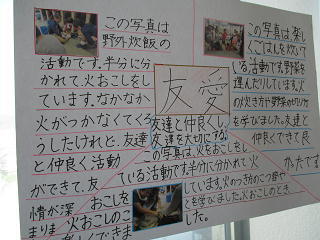 この写真は
野外炊飯の
活動です。半分に分
かれて、火おこしをし
ています。なかなか
火がつかなくてくろ
うしたけれと、友達
と仲良く活動
ができて、友
情が深
まりま
友愛
友達と仲良くし、
友達を大切にする。
この写真は楽し
くごはんを炊いて
いる活動です。野菜を
運んだりしています。火
の炊き方や野菜の切り方
を学びました。友達と
仲良くできて良
かったです
この写真は、火をおこし
ている活動です。半分に分かれて火
おこしを
しています。火のつき方のこつ
を学びました。火おこしのとき
した。
火おこしのこ